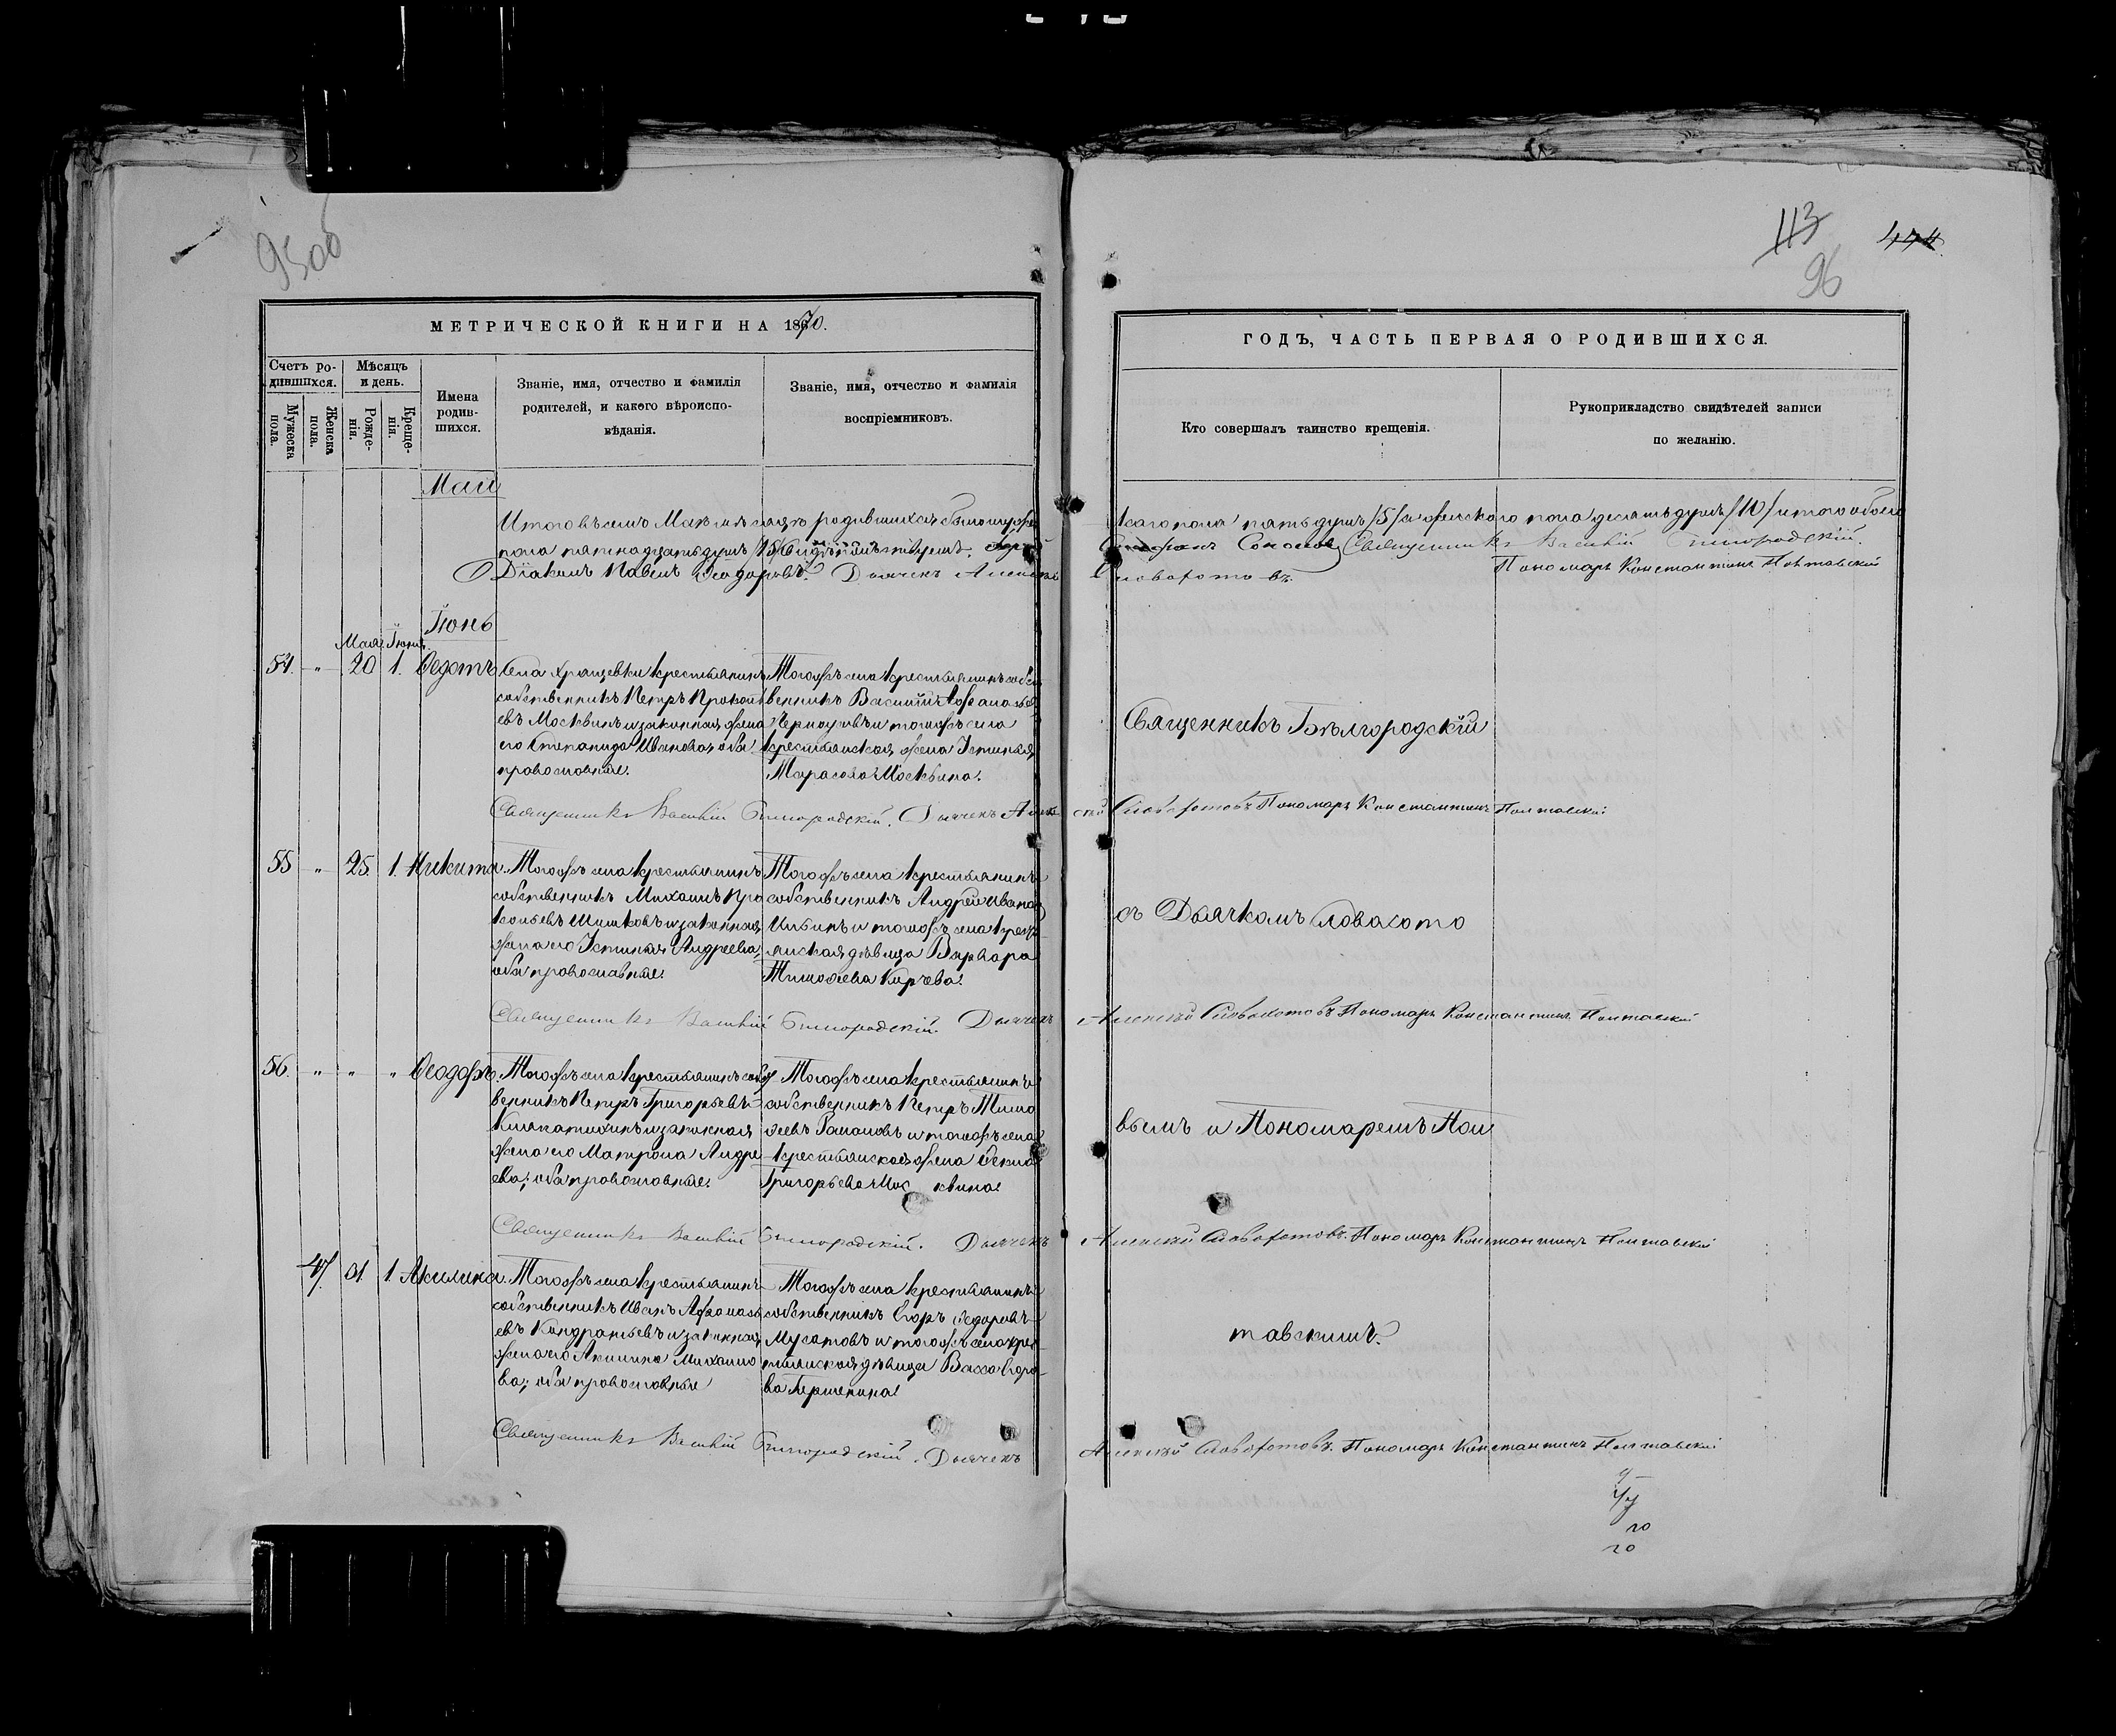 95об
113
96
МЕТРИЧЕСКОЙ КНИГИ НА 1870.
ГОДЪ, ЧАСТЬ ПЕРВАЯ О РОДИВШИХСЯ.
Счетъ родившихся.
Мужеска пола.
Женска пола.
Мѣсяцъ и день.
Рожденія.
Крещенія.
Имена родившихся.
Званіе, имя, отчество и фамилія
родителей, и какого вѣроиспо-
вѣданія.
Званіе, имя, отчество и фамилія
воспріемниковъ.
Кто совершалъ таинство крещенія.
Рукоприкладство свидѣтелей записи
по желанію.
Май
Итого въ семъ Маѣ мѣсяцѣ родившихся было муже
скаго пола пять душъ /5/ а женскаго пола десять душъ /10/ итого обоего
пола пятнадцать душъ /15/
Священникъ Василій Бѣлгородскій.
Діаконъ Павелъ Ѳеодоровъ. Дьячекъ Алексѣй
Пономарь Константинъ Полтавскій
Іюнь
Мая Іюня
54. " 20 1. Ѳедотъ
Села Хрящевки крестьянинъ
собственникъ Петръ Прокопь
евъ Москвинъ и законная жена
его Степанида Иванова, оба
православные.
Тогожъ села крестьянинъ собст
венникъ Василій Афанасьев
и тогожъ села
крестьянская жена Устинья
Тарасова Москвина.
Священникъ Бѣлгородскій
Священникъ Василій Бѣлгородскій. Дьячекъ Алексѣй
Пономарь Константинъ Полтавскій
55 " 25 1. Никита
Тогожъ села крестьянинъ
собственникъ Михаилъ Про
копьевъ Шишковъ и законная
жена его Устинья Андреева,
оба православные.
Тогожъ села крестьянинъ
собственникъ Андрей Иванов
и тогожъ села крест
янская дѣвица Варвара
Тимофеева
съ Дьячкомъ
Священникъ Василій Бѣлгородскій. Дьячекъ
Алексѣй Пономарь Константинъ Полтавскій
56. " " " Ѳеодоръ.
Тогожъ села крестьянинъ собст
венникъ Петръ Григорьевъ
и законная
жена его Матрона Андре
ева, оба православные.
Тогожъ села крестьянинъ
собственникъ Петръ Тимо
феевъ и тогожъ села
крестьянская жена Ѳекла
Григорьева Москвина
вымъ и Пономаремъ Пол
Священникъ Василій Бѣлгородскій. Дьячекъ
Алексѣй Пономарь Константинъ Полтавскій
47 31 1. Акилина.
Тогожъ села крестьянинъ
собственникъ Иванъ Афанась
евъ Кондратьевъ и законная
жена его Акилина Михайло
ва, оба православные
Тогожъ села крестьянинъ
собственникъ Егоръ Ѳедоровъ
Мусатовъ и тогожъ села крес
тьянская дѣвица Васса Егоро
ва
тавскимъ.
Священникъ Василій Бѣлгородскій. Дьячекъ
Алексѣй Пономарь Константинъ Полтавскій